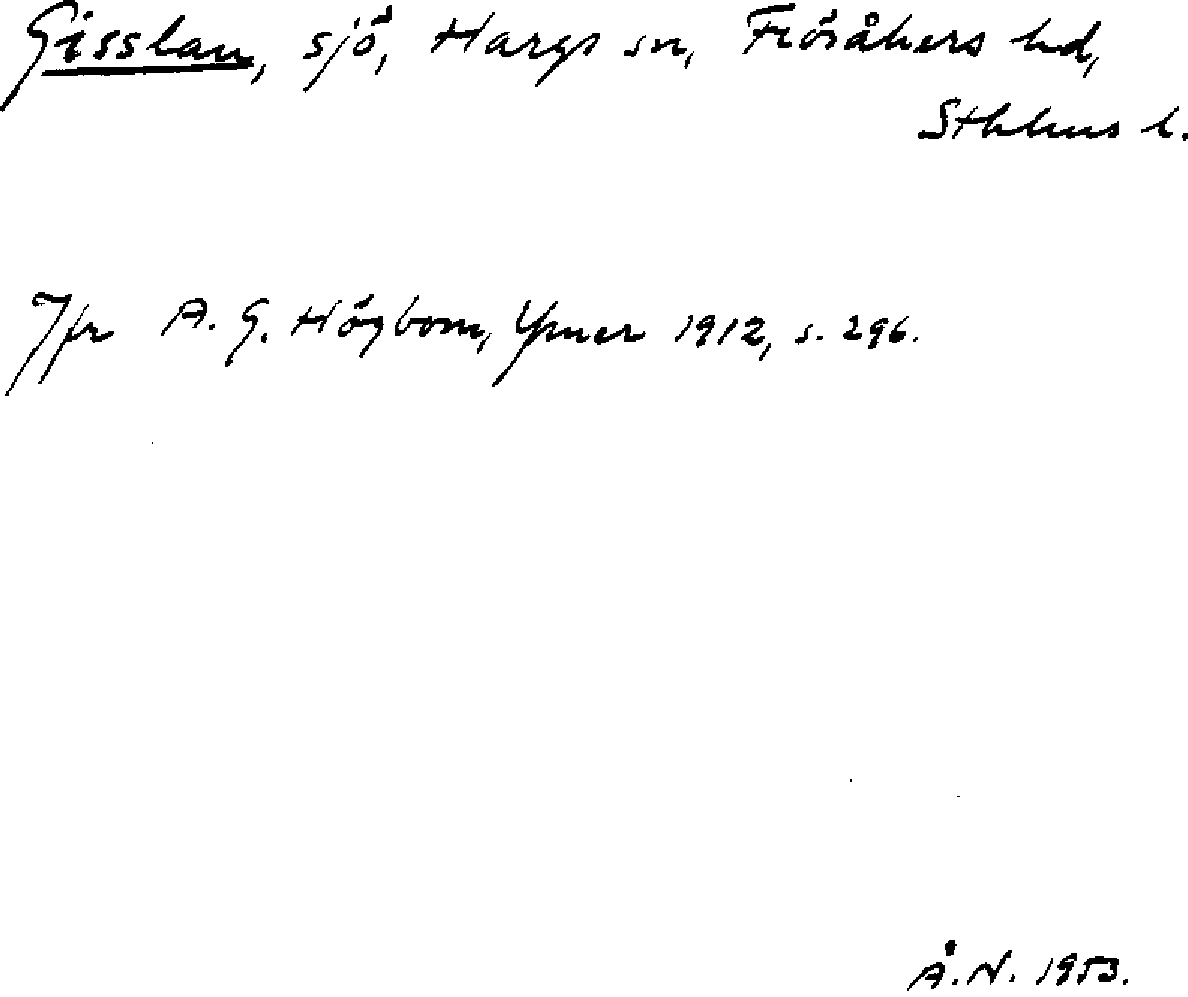 Gisslan, sjö, Hargs sn, Frösåkers hd,
Sthlms l.
Jfr A. G. Högbom, Ymer 1912, s. 296.
Å. N. 1953.